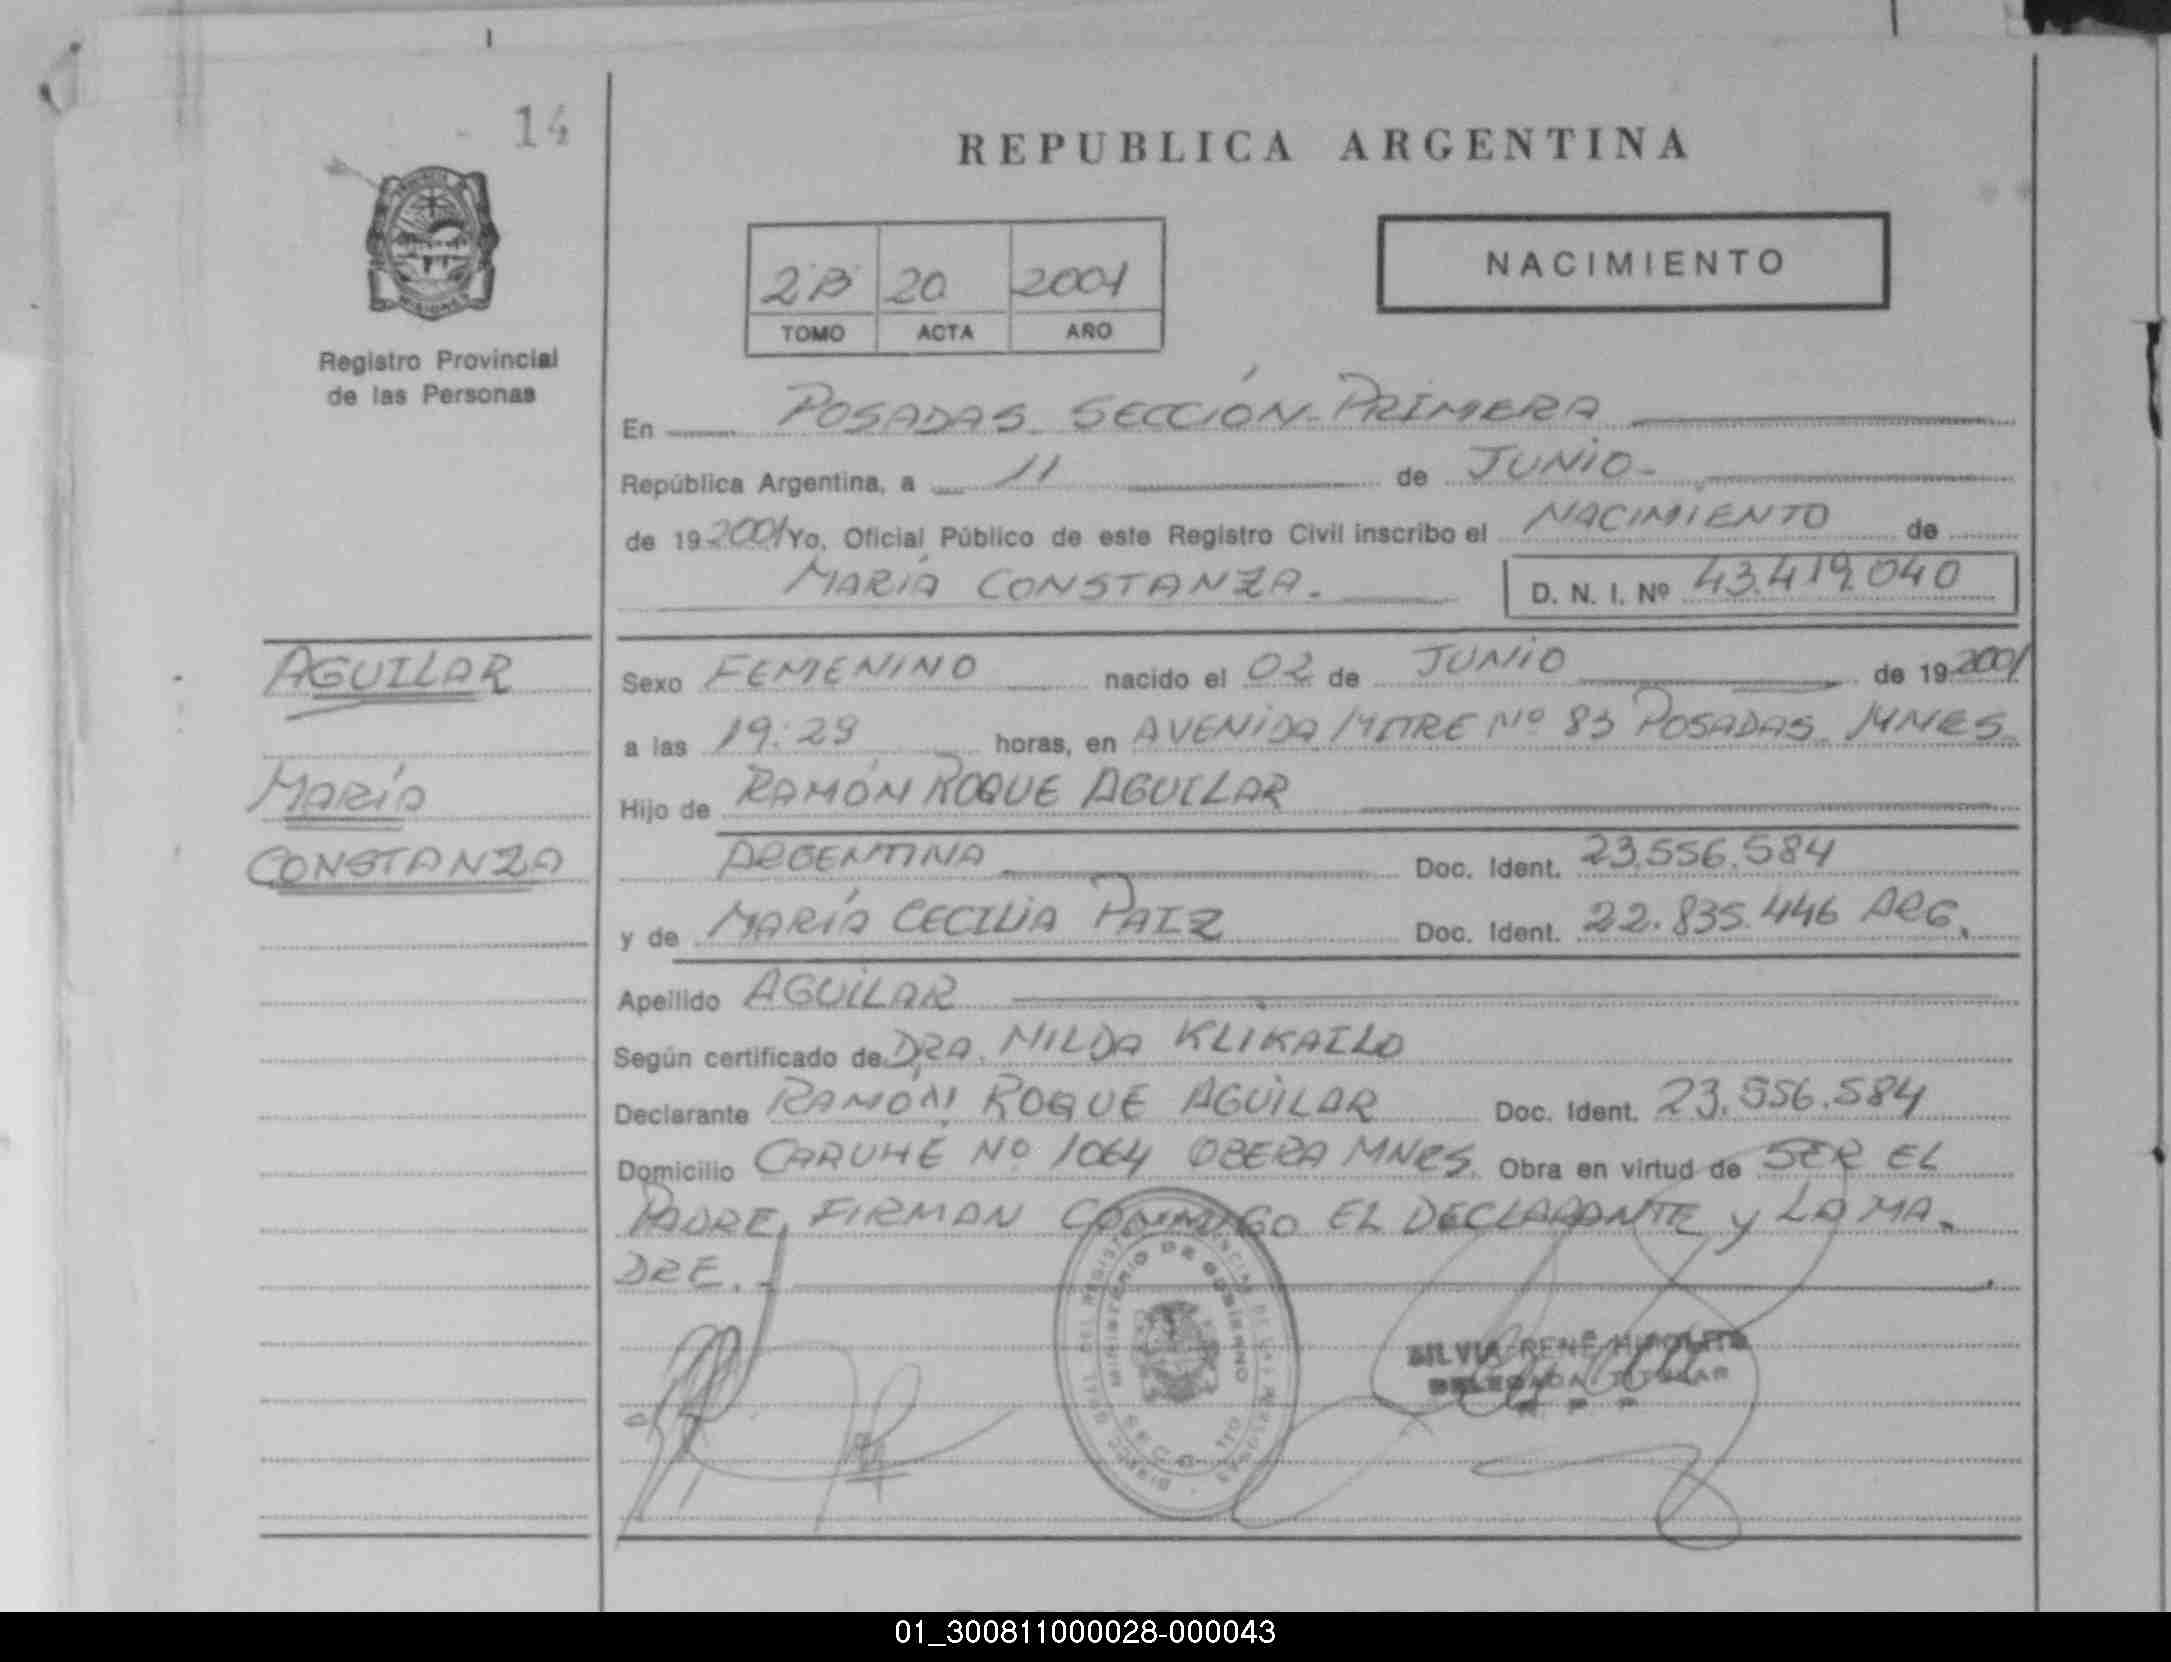 14
REPUBLICA ARGENTINA
NACIMIENTO
2B 20 2001
TOMO ACTA AÑO
Registro Provincial
de las Personas
En POSADAS SECCIÓN PRIMERA
República Argentina, a 11 de JUNIO
de 19 2001 Yo, Oficial Público de este Registro Civil inscribo el NACIMIENTO de
MARÍA CONSTANZA.
D. N. I. Nº 43.419.040
AGUILAR
MARÍA
CONSTANZA
Sexo FEMENINO nacido el 02 de JUNIO de 19 2001
a las 19:29 horas, en AVENIDA MITRE Nº 83 POSADAS MNES.
Hijo de RAMÓN ROQUE AGUILAR
ARGENTINA Doc. Ident. 23.556.584
y de MARÍA CECILIA PAIZ Doc. Ident. 22.835.446 ARG.
Apellido AGUILAR
Según certificado de DRA. NILDA KLIKAILO
Declarante RAMÓN ROQUE AGUILAR Doc. Ident. 23.556.584
Domicilio CARUHÉ Nº 1064 OBERA MNES. Obra en virtud de SER EL
PADRE, FIRMAN CONMIGO EL DECLARANTE y LA MA-
DRE.
MINISTERIO DE GOBIERNO
SILVIA RENÉ HIPOLITO
DELEGADA TITULAR
R P P
01_300811000028-000043